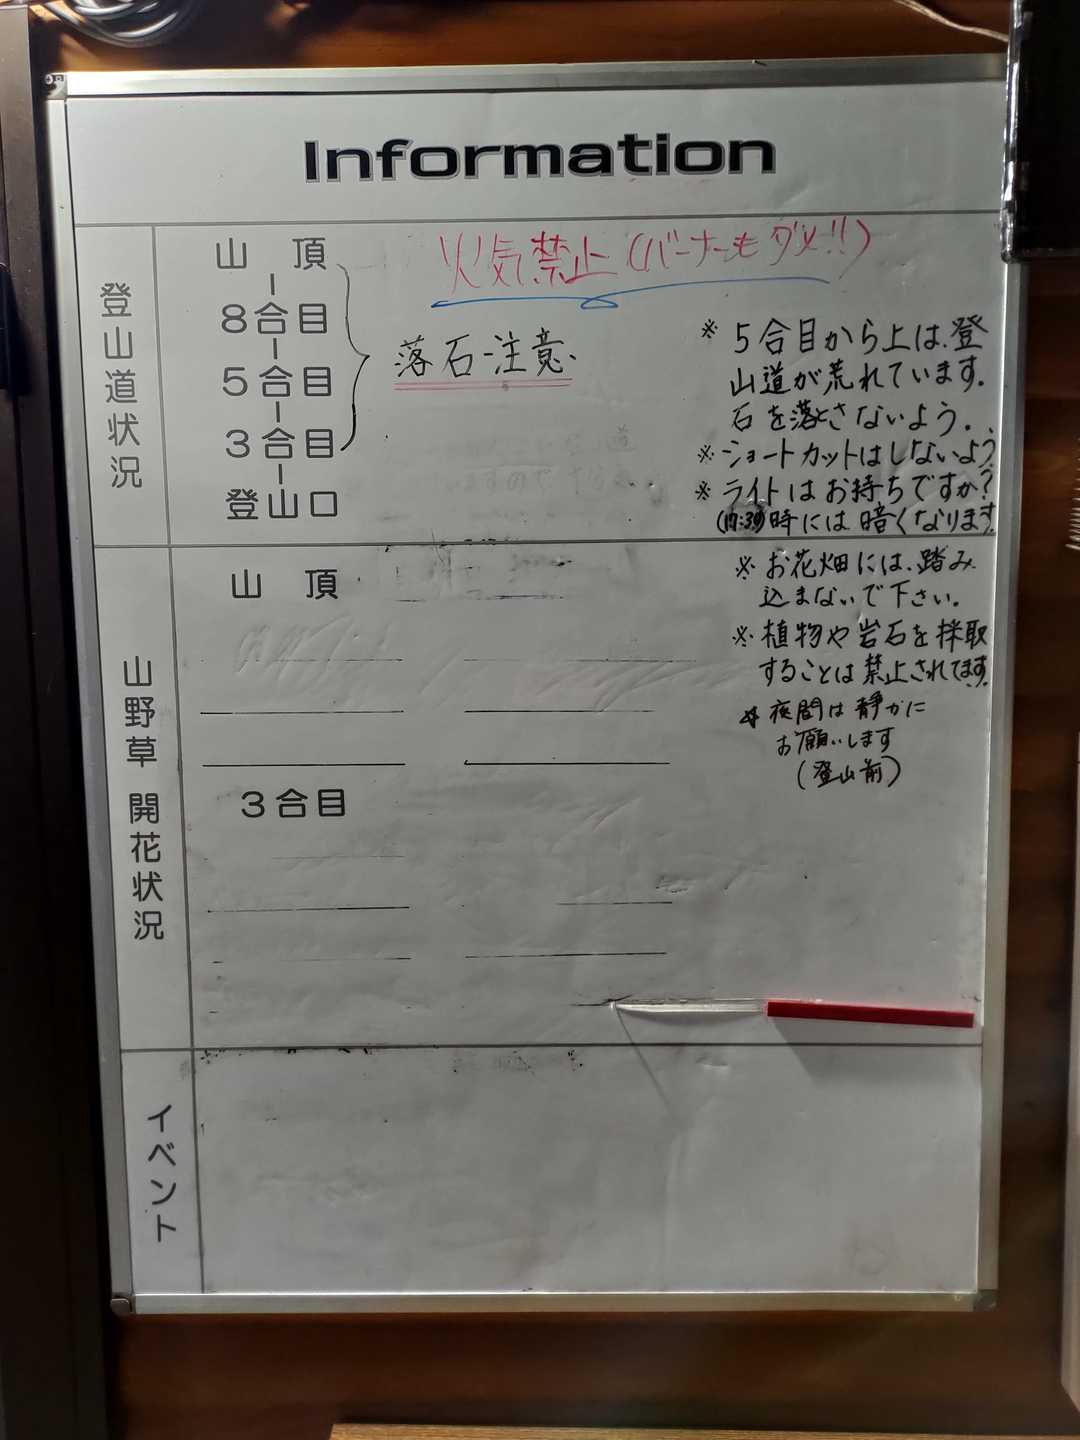 Information
登山道状況
山 頂
8合目
5合目
3合目
登山口
火気禁止(バーナーもダメ!!)
落石注意
※5合目から上は、登
山道が荒れています。
石を落とさないよう。
※ショートカットはしないよう
※ライトはお持ちですか?
(17:30)時には暗くなります。
山野草 開花状況
山 頂
3合目
※お花畑には、踏み
込まないで下さい。
※植物や岩石を採取
することは禁止されてます。
※夜間は静かに
お願いします
(登山前)
イベント